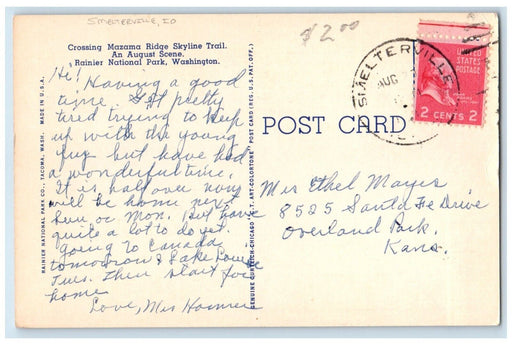 SMELTERVILLE, ID
$2.00
Crossing Mazama Ridge Skyline Trail.
An August Scene.
Rainier National Park, Washington.
Hi!
Having a good
time. Get pretty
tired trying to keep
up with the young
fry but have had
a wonderful time.
It is half over now
will be home next
Sun or Mon. but have
quite a lot to do yet.
going to Canada
tomorrow & Lake Louise
Tues. Then start for
home
Love, Mrs
RAINIER NATIONAL PARK CO., TACOMA, WASH. MADE IN U.S.A.
GENUINE CURTEICH-CHICAGO "C.T. ART-COLORTONE" POST CARD (REG. U.S. PAT. OFF.)
POST CARD
SMELTERVILLE
AUG
UNITED
STATES
POSTAGE
2 CENTS 2
Mrs Ethel Mayes
8525 Santa Fe Drive
Overland Park.
Kans.